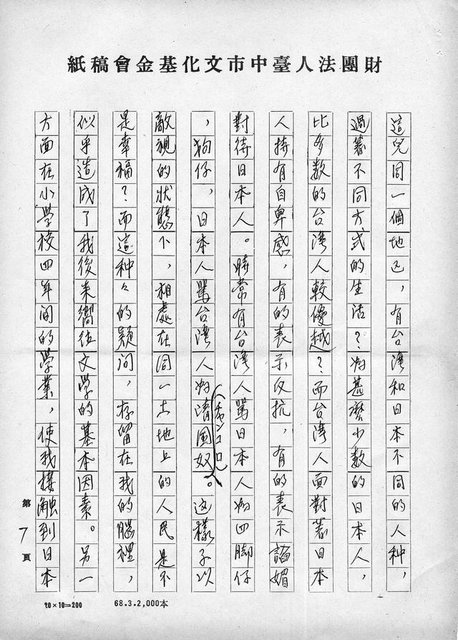 財團法人臺中市文化基金會稿紙
這兒同一個地區，有台灣和日本不同的人種，
過著不同方式的生活？為甚麼少數的日本人，
比多數的台灣人較優越？而台灣人面對著日本
人持有自卑感，有的表示反抗，有的表示諂媚
對待日本人。時常有台灣人罵日本人為四腳仔
，狗仔，日本人罵台灣人為清国奴（チャンコロ）。這樣子以
敵視的狀態下，相處在同一土地上的人民是不
是幸福？而這種々的疑问，存留在我的腦裡，
似乎造成了我後來嚮往文學的基本因素。另一
方面在小學校四年间的學業，使我接触到日本
第 7 頁
20×10＝200
68.3.2,000本